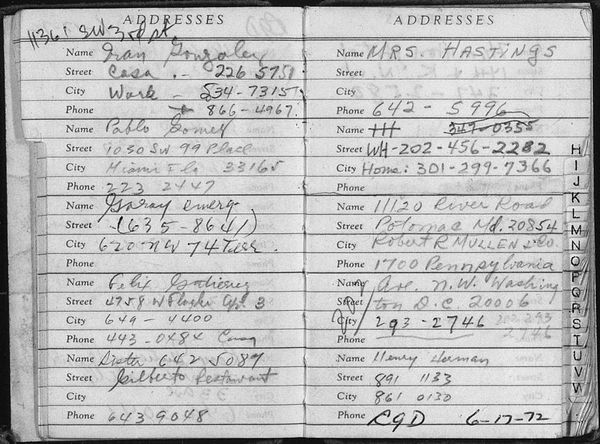 ADDRESSES
11361 SW 3rd St.
Name Gonzalez
Street Casa - 226 5751
City Work - 534-7315
Phone 866-4967
Name Pablo Gomez
Street 1030 SW 99 Place
City Miami Fla 33165
Phone 223 2447
Name Garay emerg.
Street (635-8641)
City 620 NW 74
Phone
Name Felix Gutierrez
Street 3
City 649-4400
Phone 443-0484
Name Sister 642 5087
Street Gilberto Restaurant
City
Phone 643 9048
ADDRESSES
Name MRS HASTINGS
Street
City
Phone 642 - 5996
Name HH 347-0355
Street WH-202-456-2282
City Home: 301-299-7366
Phone
Name 11120 River Road
Street Potomac Md. 20854
City Robert R MULLEN & Co.
Phone 1700 Pennsylvania
Name Ave. N.W. Washing
Street ton D.C. 20006
City 293-2746 293
Phone 2746
Name Henry
Street 891 1133
City 861 0130
Phone 6-17-72
H
I
J
K
L
M
N
O
P
Q
R
S
T
U
V
W